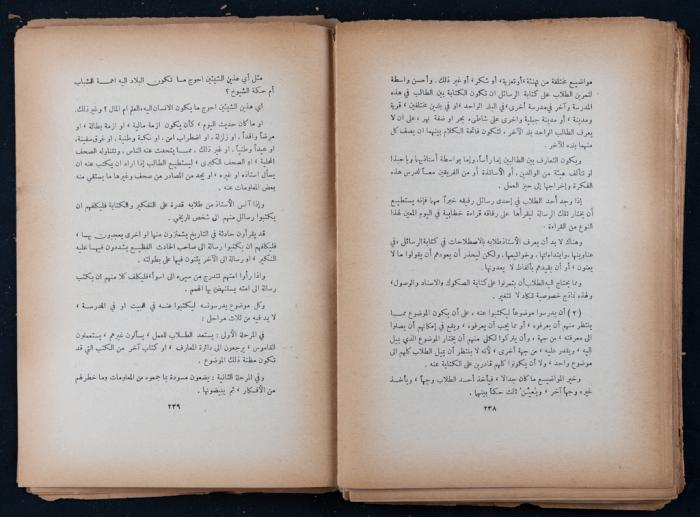 مواضيع مختلفة من تهنئة، أو تعزية، أو شكر، أو غير ذلك. وأحسن واسطة
لتمرين الطلاب على كتابة الرسائل ان تكون الكتابة بين الطالب في هذه
المدرسة وآخر في مدرسة أخرى، في البلد الواحد، او في بلدين مختلفين، قرية
ومدينة، أو مدينة جبلية واخرى على شاطىء بحر او ضفة نهر، على ان لا
يعرف الطالب الواحد بلد الآخر، لتكون فائدة الكلام بينهما ان يصف كل
منهما بلده الآخر.
ويكون التعارف بين الطالبين إما رأساً، وإما بواسطة أستاذيهما ويا حبذا
لو تتألف هيئة من الوالدين، أو الأساتذة أو من الفريقين معاً لدرس هذه
الفكرة وإخراجها إلى حيز العمل.
إذا وجد أحد الطلاب في إحدى رسائل رفيقه خبراً مهما فإنه يستطيع
أن يختار تلك الرسالة ليقرأها على رفاقه قراءة خطابية في اليوم المعين لهذا
النوع من القراءة.
وهناك لا بد أن يعرف الأستاذ طلابه بالاصطلاحات في كتابة الرسائل، في
عناوينها، وابتداءاتها، وخواتيمها. ولكن ليحذر أن يعودهم أن يقولوا ما لا
يعنون، أو أن يقيدهم بألفاظ لا يعدونها.
ومما يحتاج اليه الطلاب أن يتمرنوا على كتابة الصكوك والاسناد والوصول،
ولهذه نماذج خصوصية تكاد لا تتغير.
(٢) أن يدرسوا موضوعاً ليكتبوا عنه، على أن يكون الموضوع ممــا
ينتظر منهم أن يعرفوه، أو مما يجب أن يعرفوه، ويقع في إمكانهم أن يصلوا
الى معرفته، من جهة، وأن يترك لكل منهم أن يختار الموضوع الذي يميل
إليه، ويقدر عليه، من جهة أخرى، لأنه لا ينتظر أن يميل الطلاب كلهم الى
موضوع واحد، ولا أن يكونوا كلهم قادرين على الكتابة عنه.
وخير المواضيع ما كان جدالا، فيأخذ أحد الطلاب وجهاً، ويأخذ
غيره وجهاً آخر، ويعيّن ثالث حكماً بينهما.
٢٣٨
مثل أي هذين الشيئين احوج ما تكون البلاد اليه أهمــة الشباب
أم حكمة الشيوخ؟
أي هذين الشيئين احوج ما يكون الانسان اليه، العلم ام المال؟ وغير ذلك.
او ما كان حديث اليوم، كأن يكون ازمة مالية، او ازمة بطالة، او
مرضاً وافداً، او زلزلة، او اضطراب امن، او نكبة وطنية، او غرق سفينة،
او عيداً وطنياً، او غير ذلك، ممــا يتحدث عنه الناس، وتتناوله الصحف
المحلية، او الصحف الكبرى، ليستطيع الطالب إذا اراد ان يكتب عنه ان
يسأل استاذه او غيره، او يجد من المصادر من صحف وغيرها ما يستقي منه
بعض المعلومات عنه.
وإذا آنس الأستاذ من طلابه قدرة على التفكير والكتابة فليكلفهم ان
يكتبوا رسائل منهم الى شخص تاريخي.
قد يقرأون حادثة في التاريخ يشمئزون منها او اخرى يعجبون بهــا،
فليكلفهم ان يكتبوا رسالة الى صاحب الحادث الفظيع يشددون فيهــا عليه
النكير، او رسالة الى الآخر يثنون فيها على بطولته.
واذا رأوا امتهم تتدرج من سيىء الى اسوأ، فليكلف كلا منهم ان يكتب
رسالة الى امته يستنهض بها الهمم.
وكل موضوع يدرسونــه ليكتبوا عنــه في البيت او في المدرسة،
لا بد فيه من ثلاث مراحل:
في المرحلة الأولى: يستعد الطلاب للعمل، يسألون غيرهم، يستعملون
القاموس، يرجعون الى دائرة المعارف، او كتاب آخر من الكتب التي قد
تكون مظنة ذلك الموضوع.
وفي المرحلة الثانية: يضعون مسودة بما جمعوه من المعلومات وما خطر لهم
من الأفكار، ثم يبيضونها.
٢٣٩